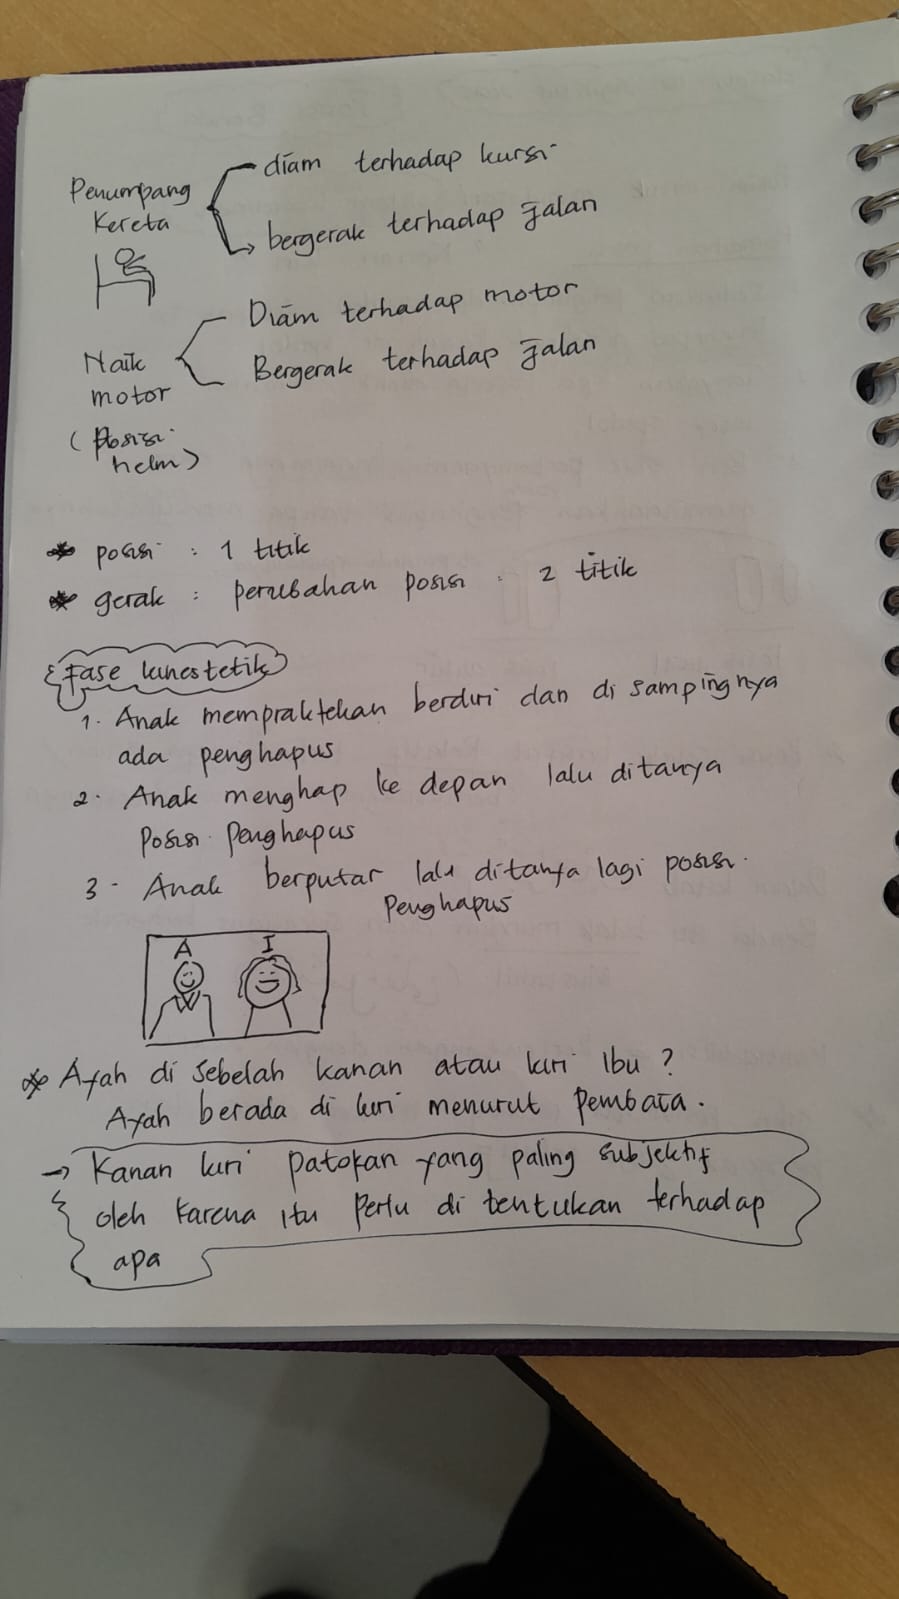 Penumpang
Kereta
diam terhadap kursi
bergerak terhadap jalan
Naik
motor
(posisi
helm)
Diam terhadap motor
Bergerak terhadap jalan
* posisi : 1 titik
* gerak : perubahan posisi : 2 titik
Fase kinestetik
1. Anak mempraktekan berdiri dan di sampingnya
ada penghapus
2. Anak menghap ke depan lalu ditanya
posisi penghapus
3. Anak berputar lalu ditanya lagi posisi
Penghapus
A I
* Ayah di sebelah kanan atau kiri Ibu?
Ayah berada di kiri menurut Pembaca.
→ Kanan kiri patokan yang paling subjektif
oleh karena itu perlu di tentukan terhadap
apa